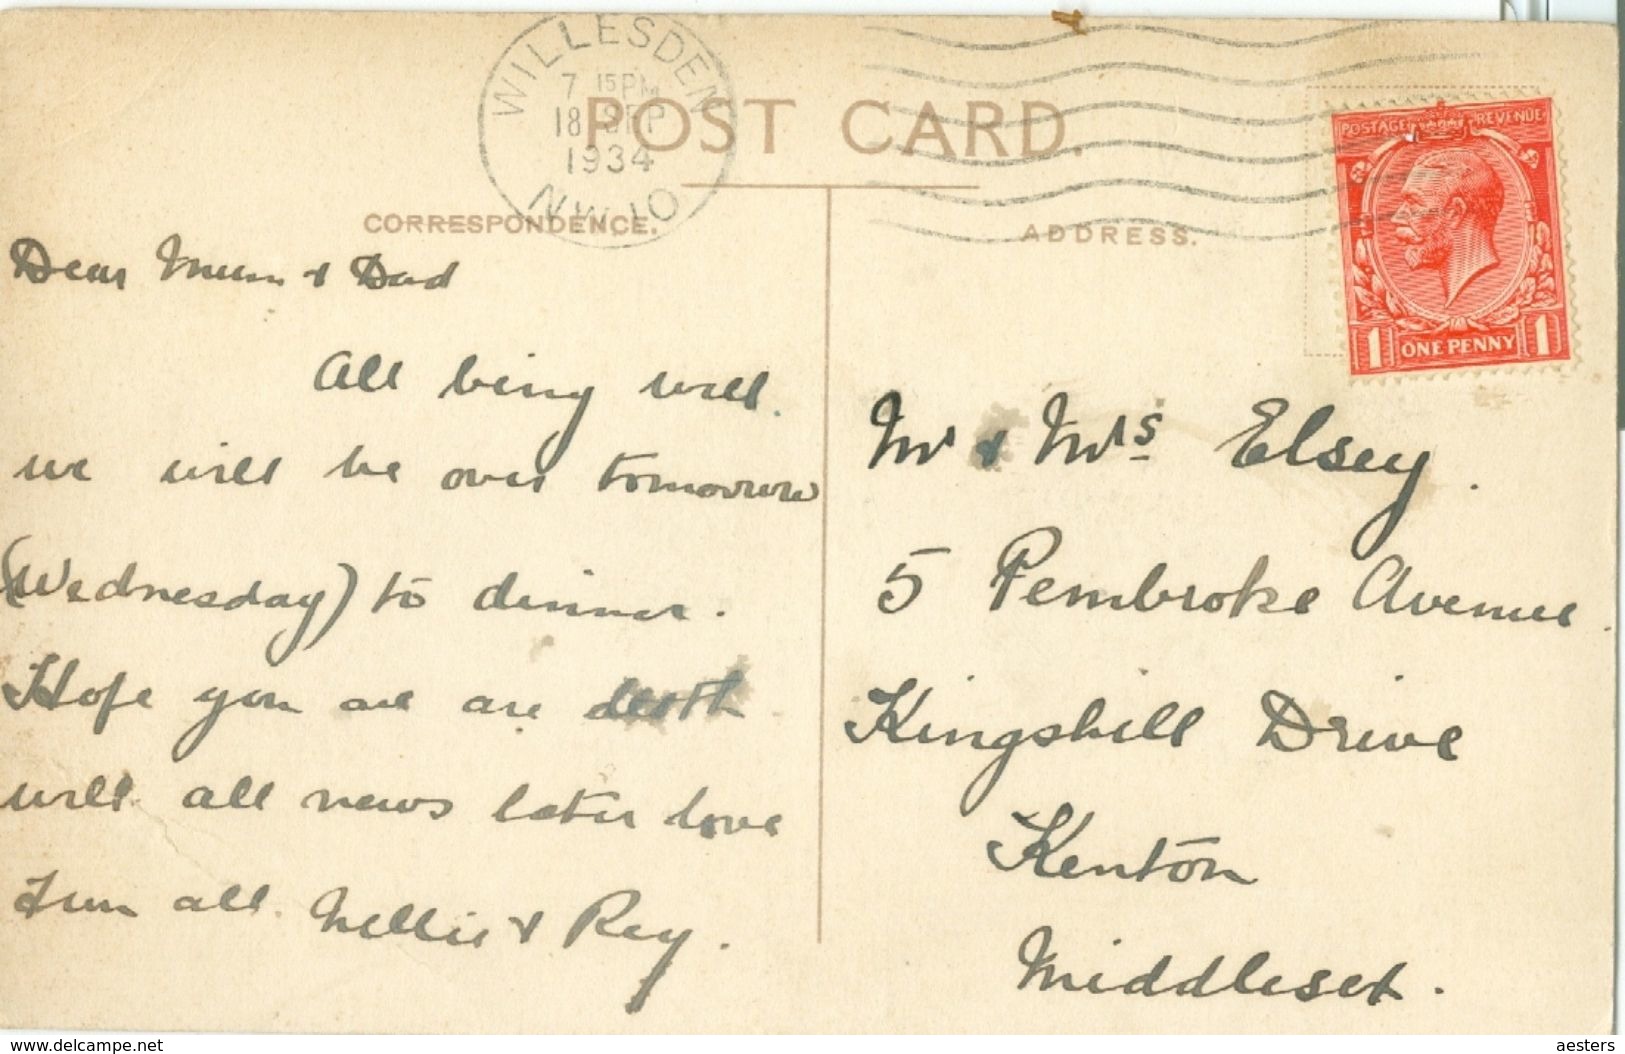 WILLESDEN
7 15 PM
18 SEP
1934
N.W.10
POST CARD.
CORRESPONDENCE.
ADDRESS.
POSTAGE REVENUE
1 ONE PENNY 1
Dear Mum & Dad
All being well.
we will be over tomorrow
(Wednesday) to dinner.
Hope you are are both
well. all news later love
from all. Nellie & Ray.
Mr & Mrs Elsey.
5 Pembroke Avenue.
Kingshill Drive
Kenton
Middlesex.
www.delcampe.net
aesters